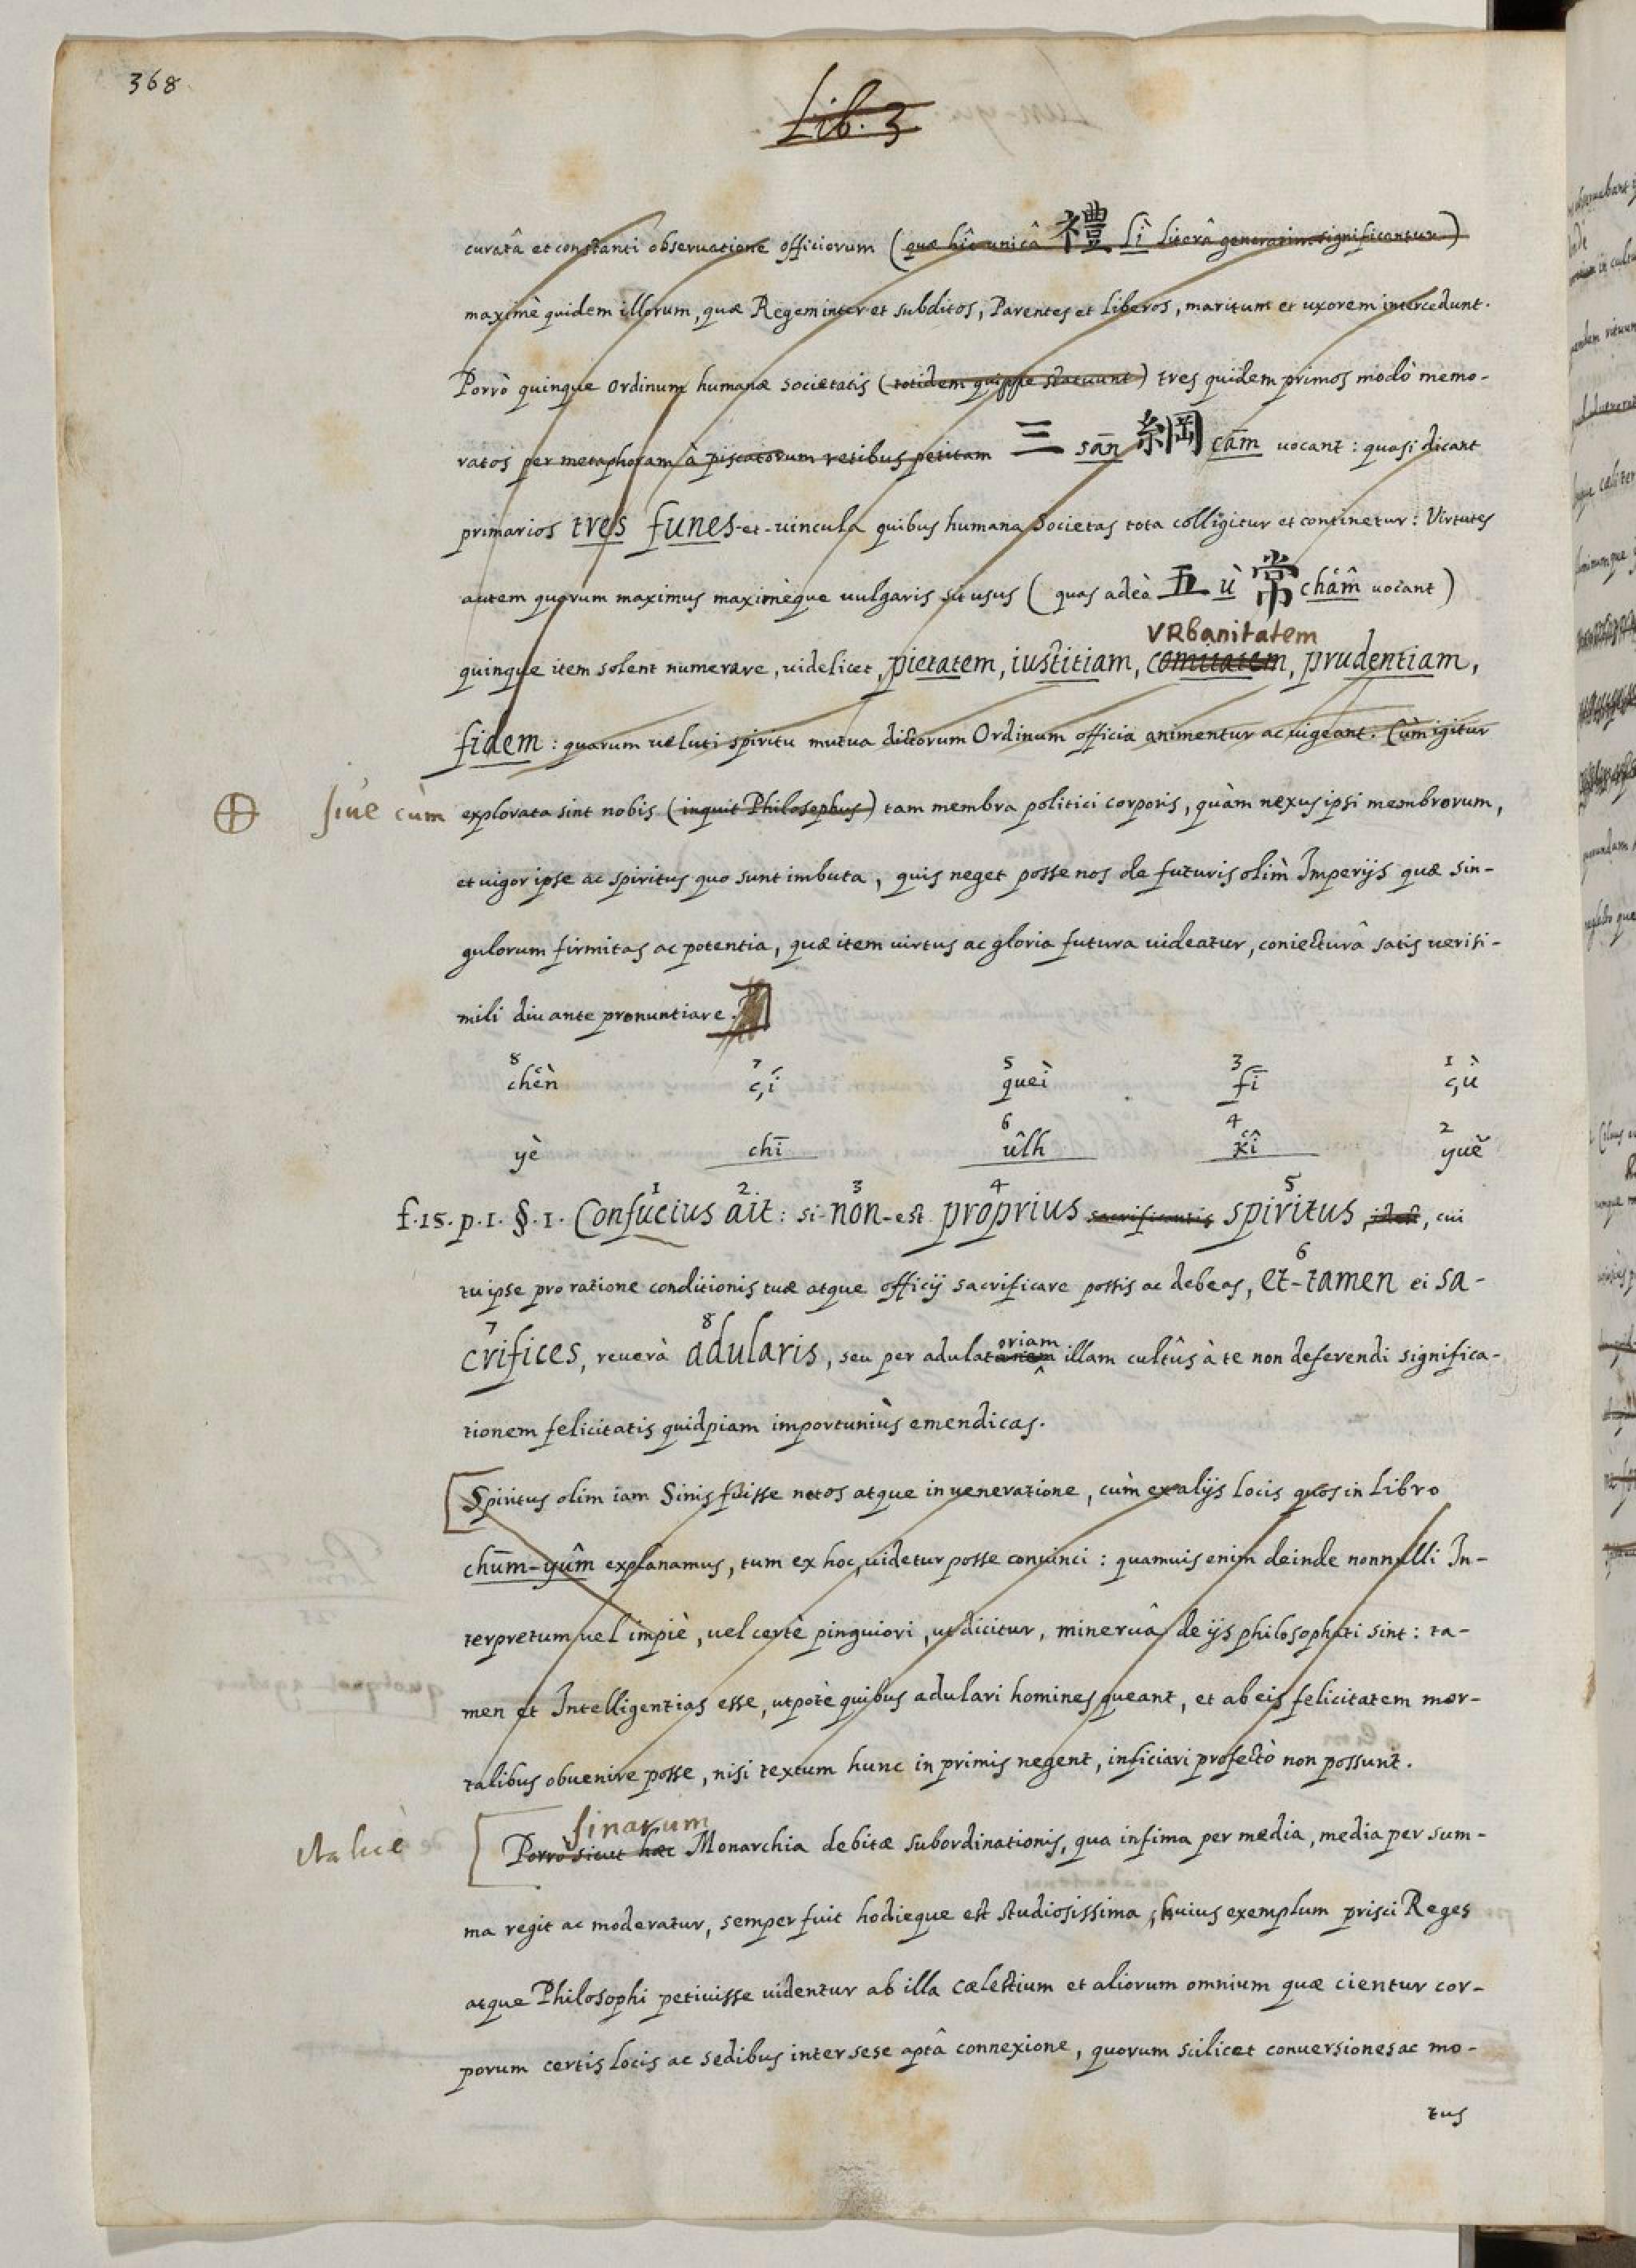 368
Lib. 3
curatâ et constanti obseruatione officiorum (quæ hîc unicâ 禮 Lì literâ generatim significantur)
maximè quidem illorum, quæ Regem inter et subditos, Parentes et Liberos, maritum et uxorem intercedunt.
Porrò quinque Ordinum humanæ societatis (totidem quippe statuunt) tres quidem primos modò memo-
ratos per metaphoram à piscatorum retibus petitam 三 sān 綱 cām uocant: quasi dicant
primarios tres funes-et-uincula quibus humana Societas tota colligitur et continetur: Virtutes
autem quarum maximus maximèque uulgaris sit usus (quas adeò 五 ù 常 chām̂ uocant)
VRbanitatem
quinque item solent numerare, uidelicet, pietatem, iustitiam, comitatem, prudentiam,
fidem: quarum ueluti spiritu mutua dictorum Ordinum officia animentur ac uigeant. Cùm igitur
siue cùm explorata sint nobis (inquit Philosophus) tam membra politici corporis, quàm nexus ipsi membrorum,
et uigor ipse ac spiritus quo sunt imbuta, quis neget posse nos de futuris olim Imperijs quæ sin-
gulorum firmitas ac potentia, quæ item uirtus ac gloria futura uideatur, coniecturâ satis uerisi-
mili diu ante pronuntiare.
8 7 5 3 1
chèn çí queì fī çù
6 4 2
yè chī ûlh kî yuĕ
1 2. 3 4 5
f. 15. p. 1. §. 1. Confucius ait: si-non-est proprius sacrificantis spiritus, idest, cui
6
tu ipse pro ratione conditionis tuæ atque officij sacrificare possis ac debeas, et-tamen ei sa-
7 8 oriam
crifices, reuerà adularis, seu per adulatanem illam cultûs à te non deferendi significa-
tionem felicitatis quidpiam importuniùs emendicas.
Spiritus olim iam Sinis fuisse notos atque in ueneratione, cùm ex alijs locis quos in Libro
chūm-yûm explanamus, tum ex hoc, uidetur posse conuinci: quamuis enim deinde nonnulli In-
terpretum uel impiè, uel certè pinguiori, ut dicitur, mineruâ de ijs philosophati sint: ta-
men et Intelligentias esse, utpotè quibus adulari homines queant, et ab eis felicitatem mor-
talibus obuenire posse, nisi textum hunc in primis negent, inficiari profectò non possunt.
sinarum
Porrò sicut hæc Monarchia debitæ subordinationis, qua infima per media, media per sum-
ma regit ac moderatur, semper fuit hodieque est studiosissima; huius exemplum prisci Reges
atque Philosophi petiuisse uidentur ab illa cælestium et aliorum omnium quæ cientur cor-
porum certis locis ac sedibus inter sese aptâ connexione, quorum scilicet conuersiones ac mo-
tus